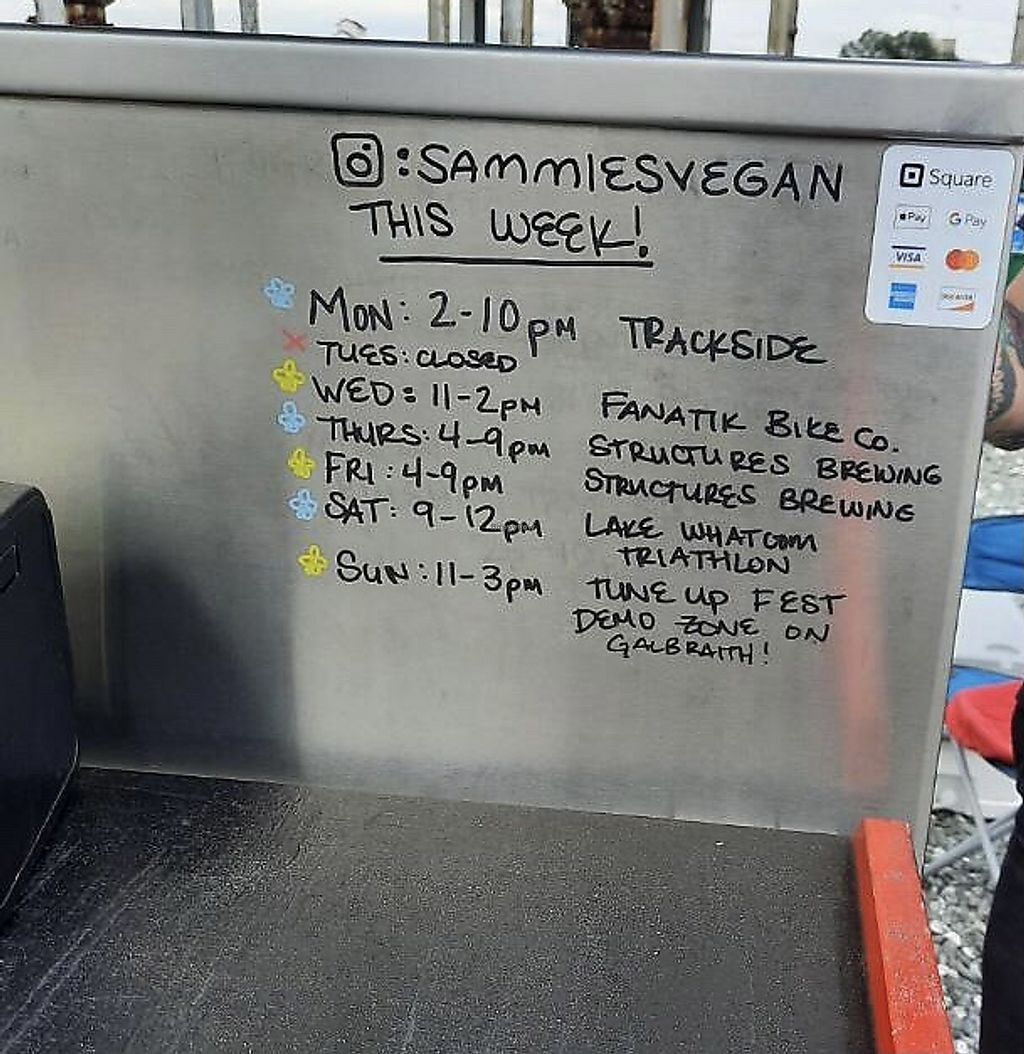 :SAMMIESVEGAN
THIS WEEK!
MON: 2-10pm TRACKSIDE
TUES: CLOSED
WED: 11-2pm FANATIK BIKE CO.
THURS: 4-9pm STRUCTURES BREWING
FRI: 4-9pm STRUCTURES BREWING
SAT: 9-12pm LAKE WHATCOM
TRIATHLON
SUN: 11-3pm TUNE UP FEST
DEMO ZONE ON
GALBRAITH!
Square
Pay G Pay
VISA